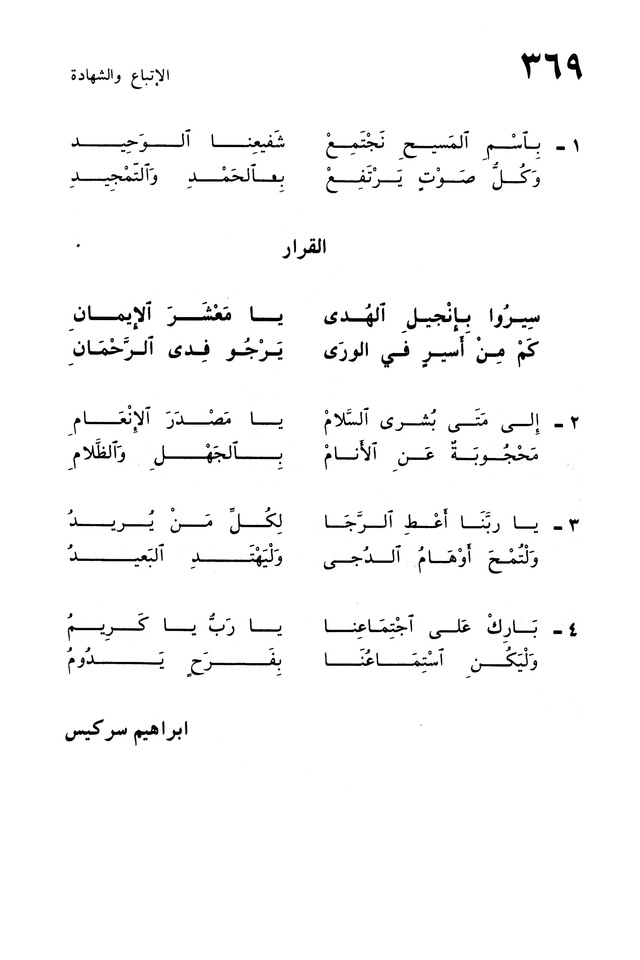 ٣٦٩
الإتباع والشهادة
١ - بِٱسْمِ المَسيحِ نَجْتَمِعْ شَفيعِنا الوَحِيد
وَكُلُّ صَوْتٍ يَرْتَفِعْ بِالحَمْدِ وَالتَّمْجِيد
القرار
سِيرُوا بِإنْجيلِ الهُدى يا مَعْشَرَ الإيمانِ
كَمْ مِنْ أَسيرٍ في الورَى يَرْجُو فِدى الرَّحْمَانِ
٢ - إلى مَتَى بُشرى السَّلامْ يا مَصْدَرَ الإنْعَامِ
مَحْجُوبَةٌ عَنِ الأَنامْ بِالجَهْلِ وَالظَّلامِ
٣ - يا ربَّنَا أَعْطِ الرَّجَا لِكُلِّ مَنْ يُريدُ
وَلْتُمْحَ أَوْهَامُ الدُجى وَلْيَهْتَدِ البَعيدُ
٤ - بَارِكْ عَلى ٱجْتِمَاعِنا يا رَبُّ يا كَرِيمُ
وَلْيَكُنِ ٱسْتِمَاعُنَا بِفَرَحٍ يَدُومُ
ابراهيم سركيس